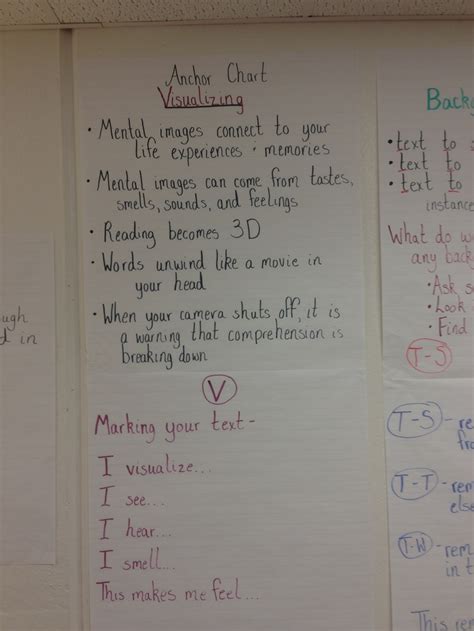 Anchor Chart
Visualizing
• Mental images connect to your
life experiences • memories
• Mental images can come from tastes,
smells, sounds, and feelings
• Reading becomes 3D
• Words unwind like a movie in
your head
• When your camera shuts off, it is
a warning that comprehension is
breaking down
V
Marking your text-
I visualize...
I see...
I hear...
I smell...
This makes me feel....
Backg
• text to
• text to
• text to
instance
What do w
any back
• Ask s
• Look
• Find
T-S
T-S - re
fro
T-T - rem
else
T-W - rem
in t
This re
ough
d in